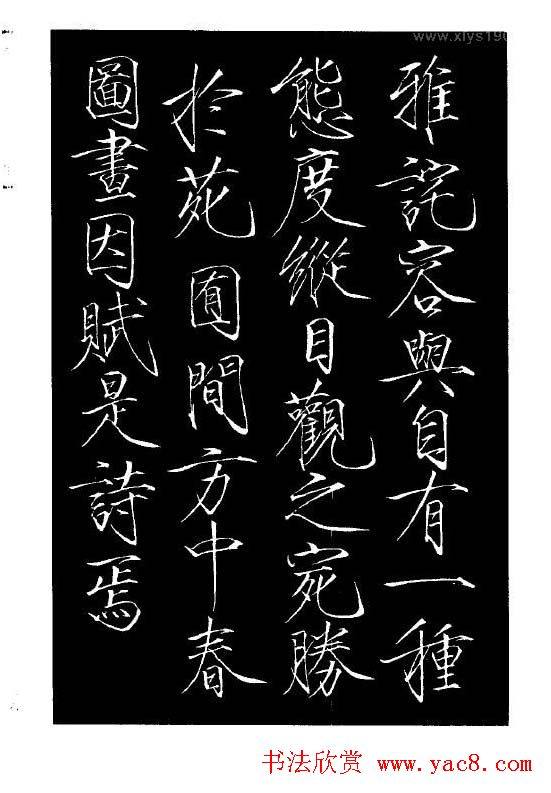 www.xlys190
雅詫容與自有一種
態度縱目觀之宛勝
於苑囿間方中春
圖畫因賦是詩焉
书法欣赏 www.yac8.com